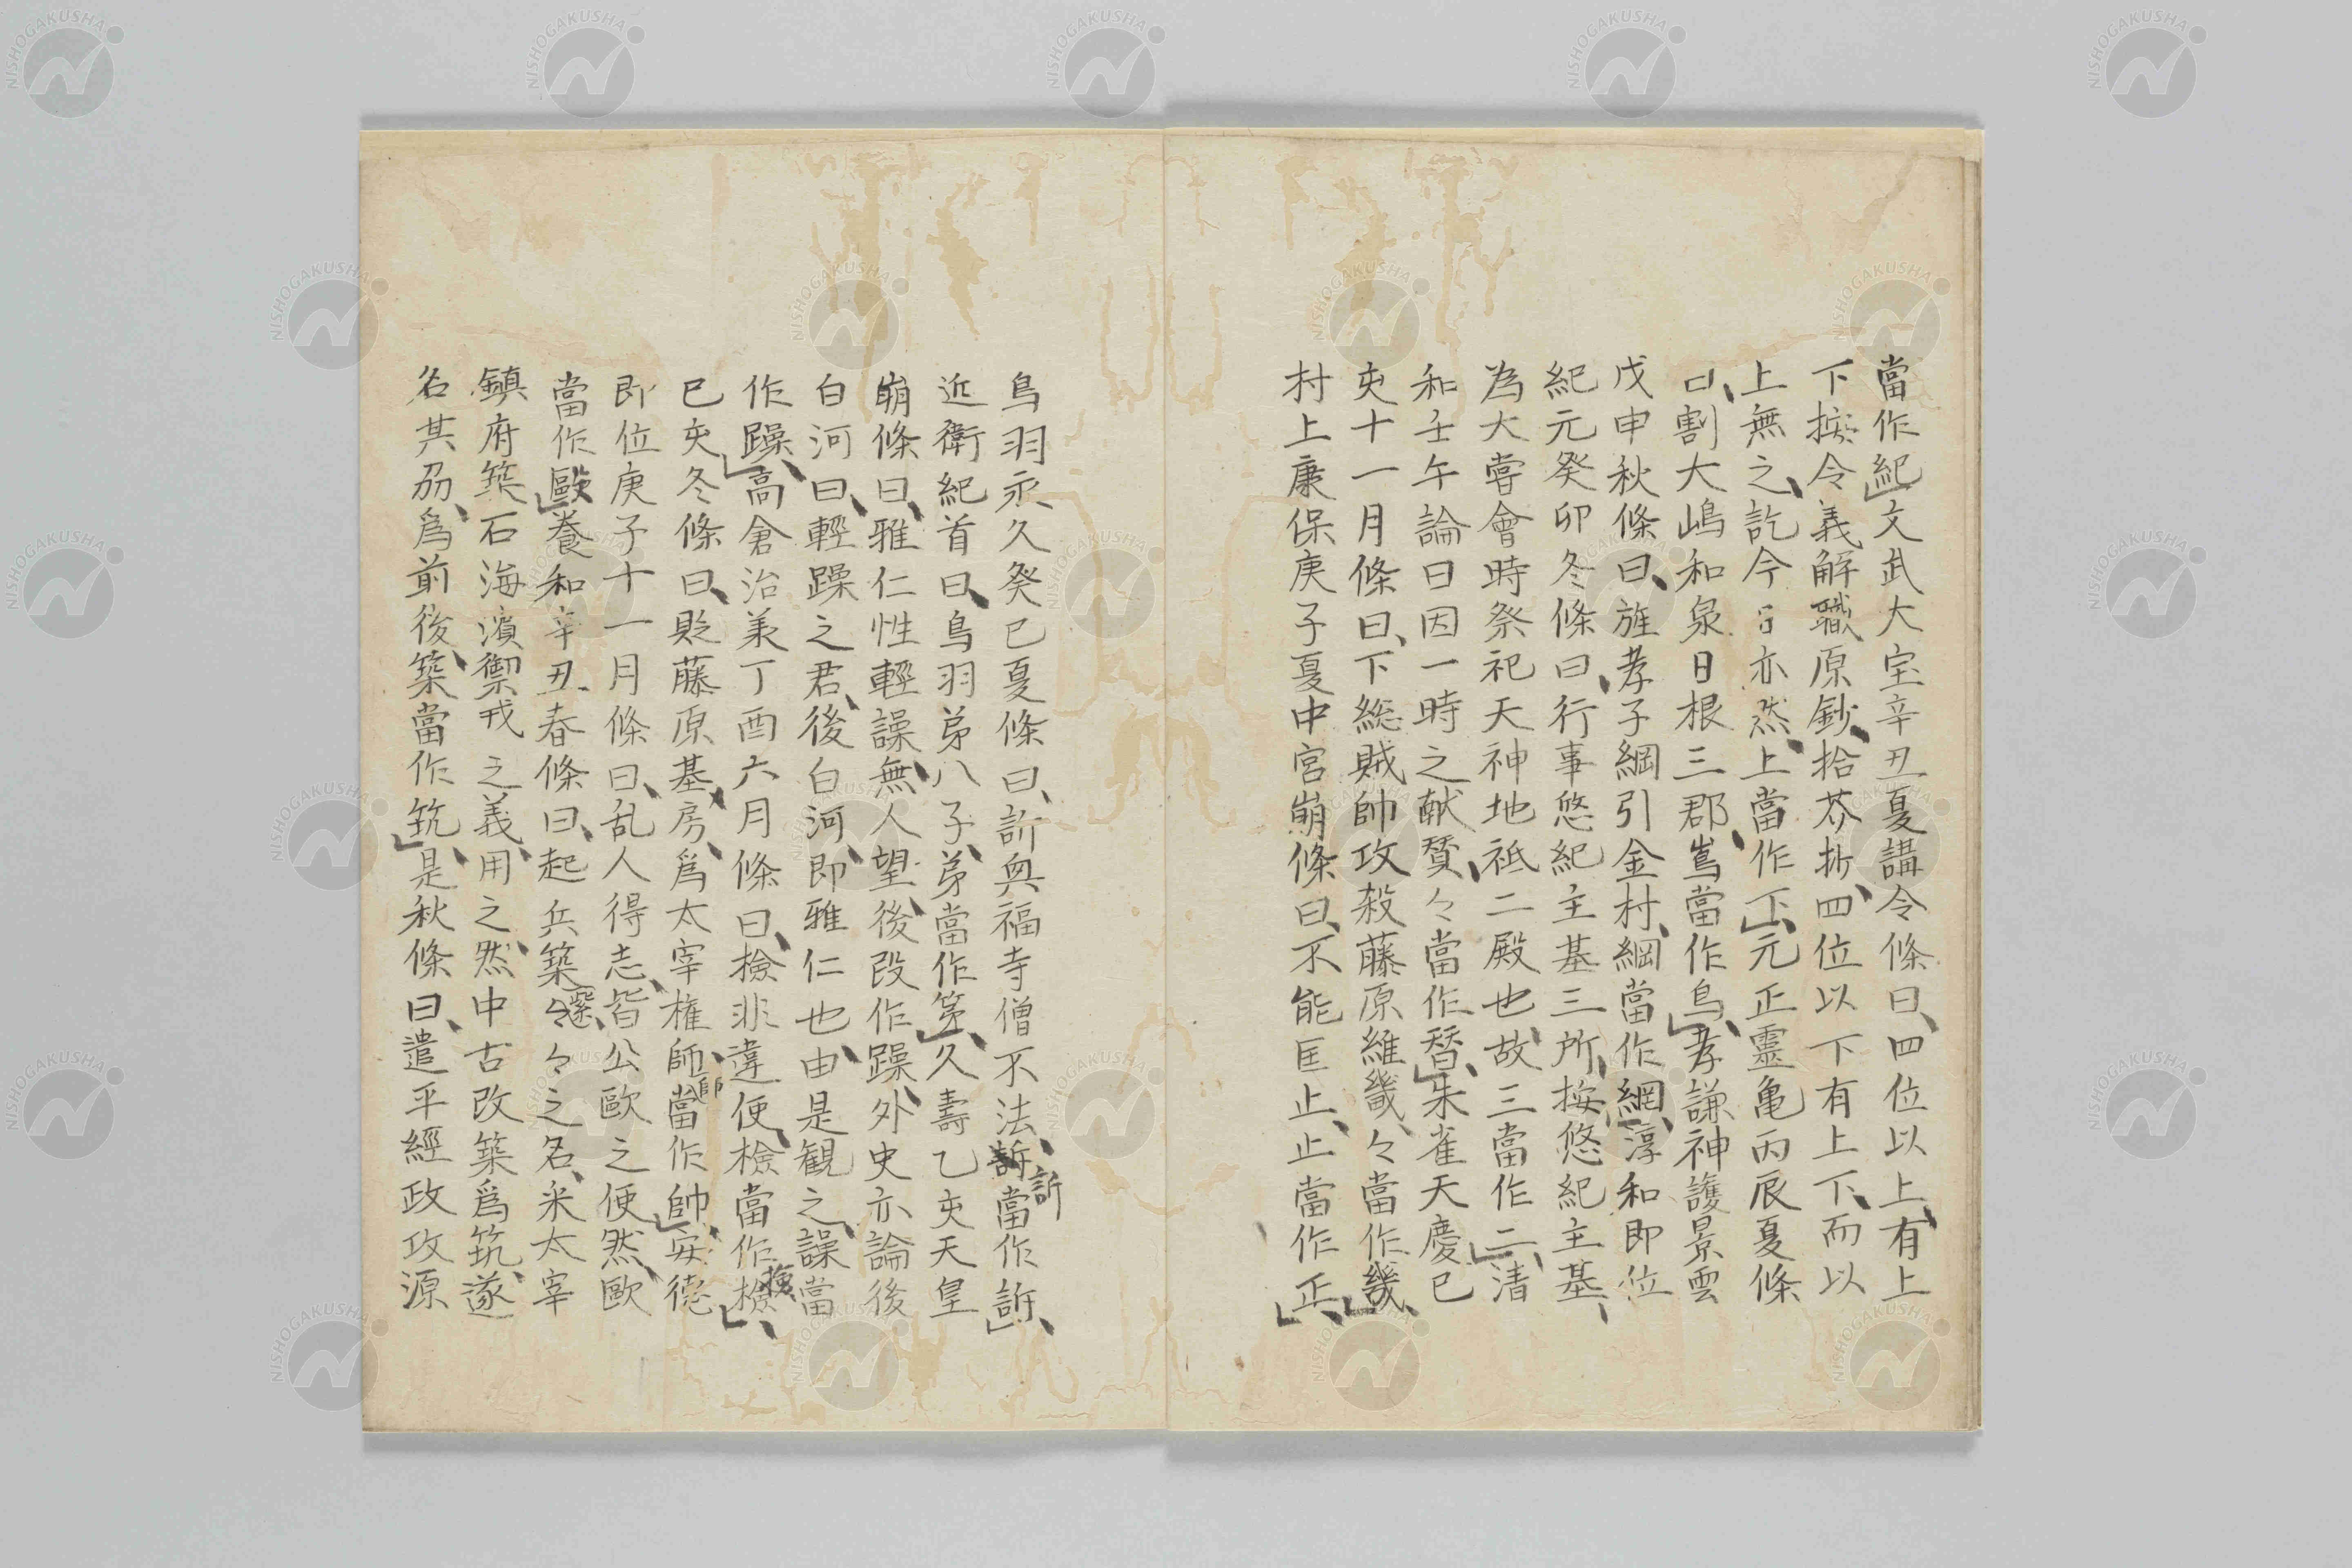 當作紀」文武大宝辛丑夏講令條曰、四位以上、有上
下按令義解職原鈔、拾芥抄、四位以下有上下、而以
上無之、訖今日亦然、上當作下」、元正靈亀丙辰夏條
曰、割大嶋和泉日根三郡、嶌當作鳥」、孝謙神護景雲
戊申秋條曰、旌孝子綱引金村、綱當作網」、淳和即位
紀元癸卯冬條曰、行事悠紀主基三所、按悠紀主基、
為大嘗會時祭祀天神地祇二殿也、故三當作二」、清
和壬午論曰因一時之献賛、々當作替」、朱雀天慶己
亥十一月條曰、下総賊帥攻殺藤原維畿、々當作幾」、
村上康保庚子夏中宮崩條曰、不能匡止、止當作正」、
鳥羽永久癸巳夏條曰、訴興福寺僧不法、訴當作訴」、
訴
近衛紀首曰、鳥羽弟八子、弟當作第」、久壽乙亥天皇
崩條曰、雅仁性輕譟無、人望、後改作躁、外史亦論後
白河曰、輕躁之君、後白河、即雅仁也、由是観之、譟當
作躁」、高倉治美丁酉六月條曰、撿非違使、檢當作檢」、
撿
己亥冬條曰、貶藤原基房、爲太宰権師、當作帥」、安德
師
即位庚子十一月條曰、乱人得志、皆公歐之使然、歐
當作毆」養和辛丑春條曰、起兵築々々之名、釆太宰
鎮府築石海濱禦戎之義、用之、然中古改築爲筑、遂
名其刕、爲前後、築當作筑」、是秋條曰、遣平經政攻源